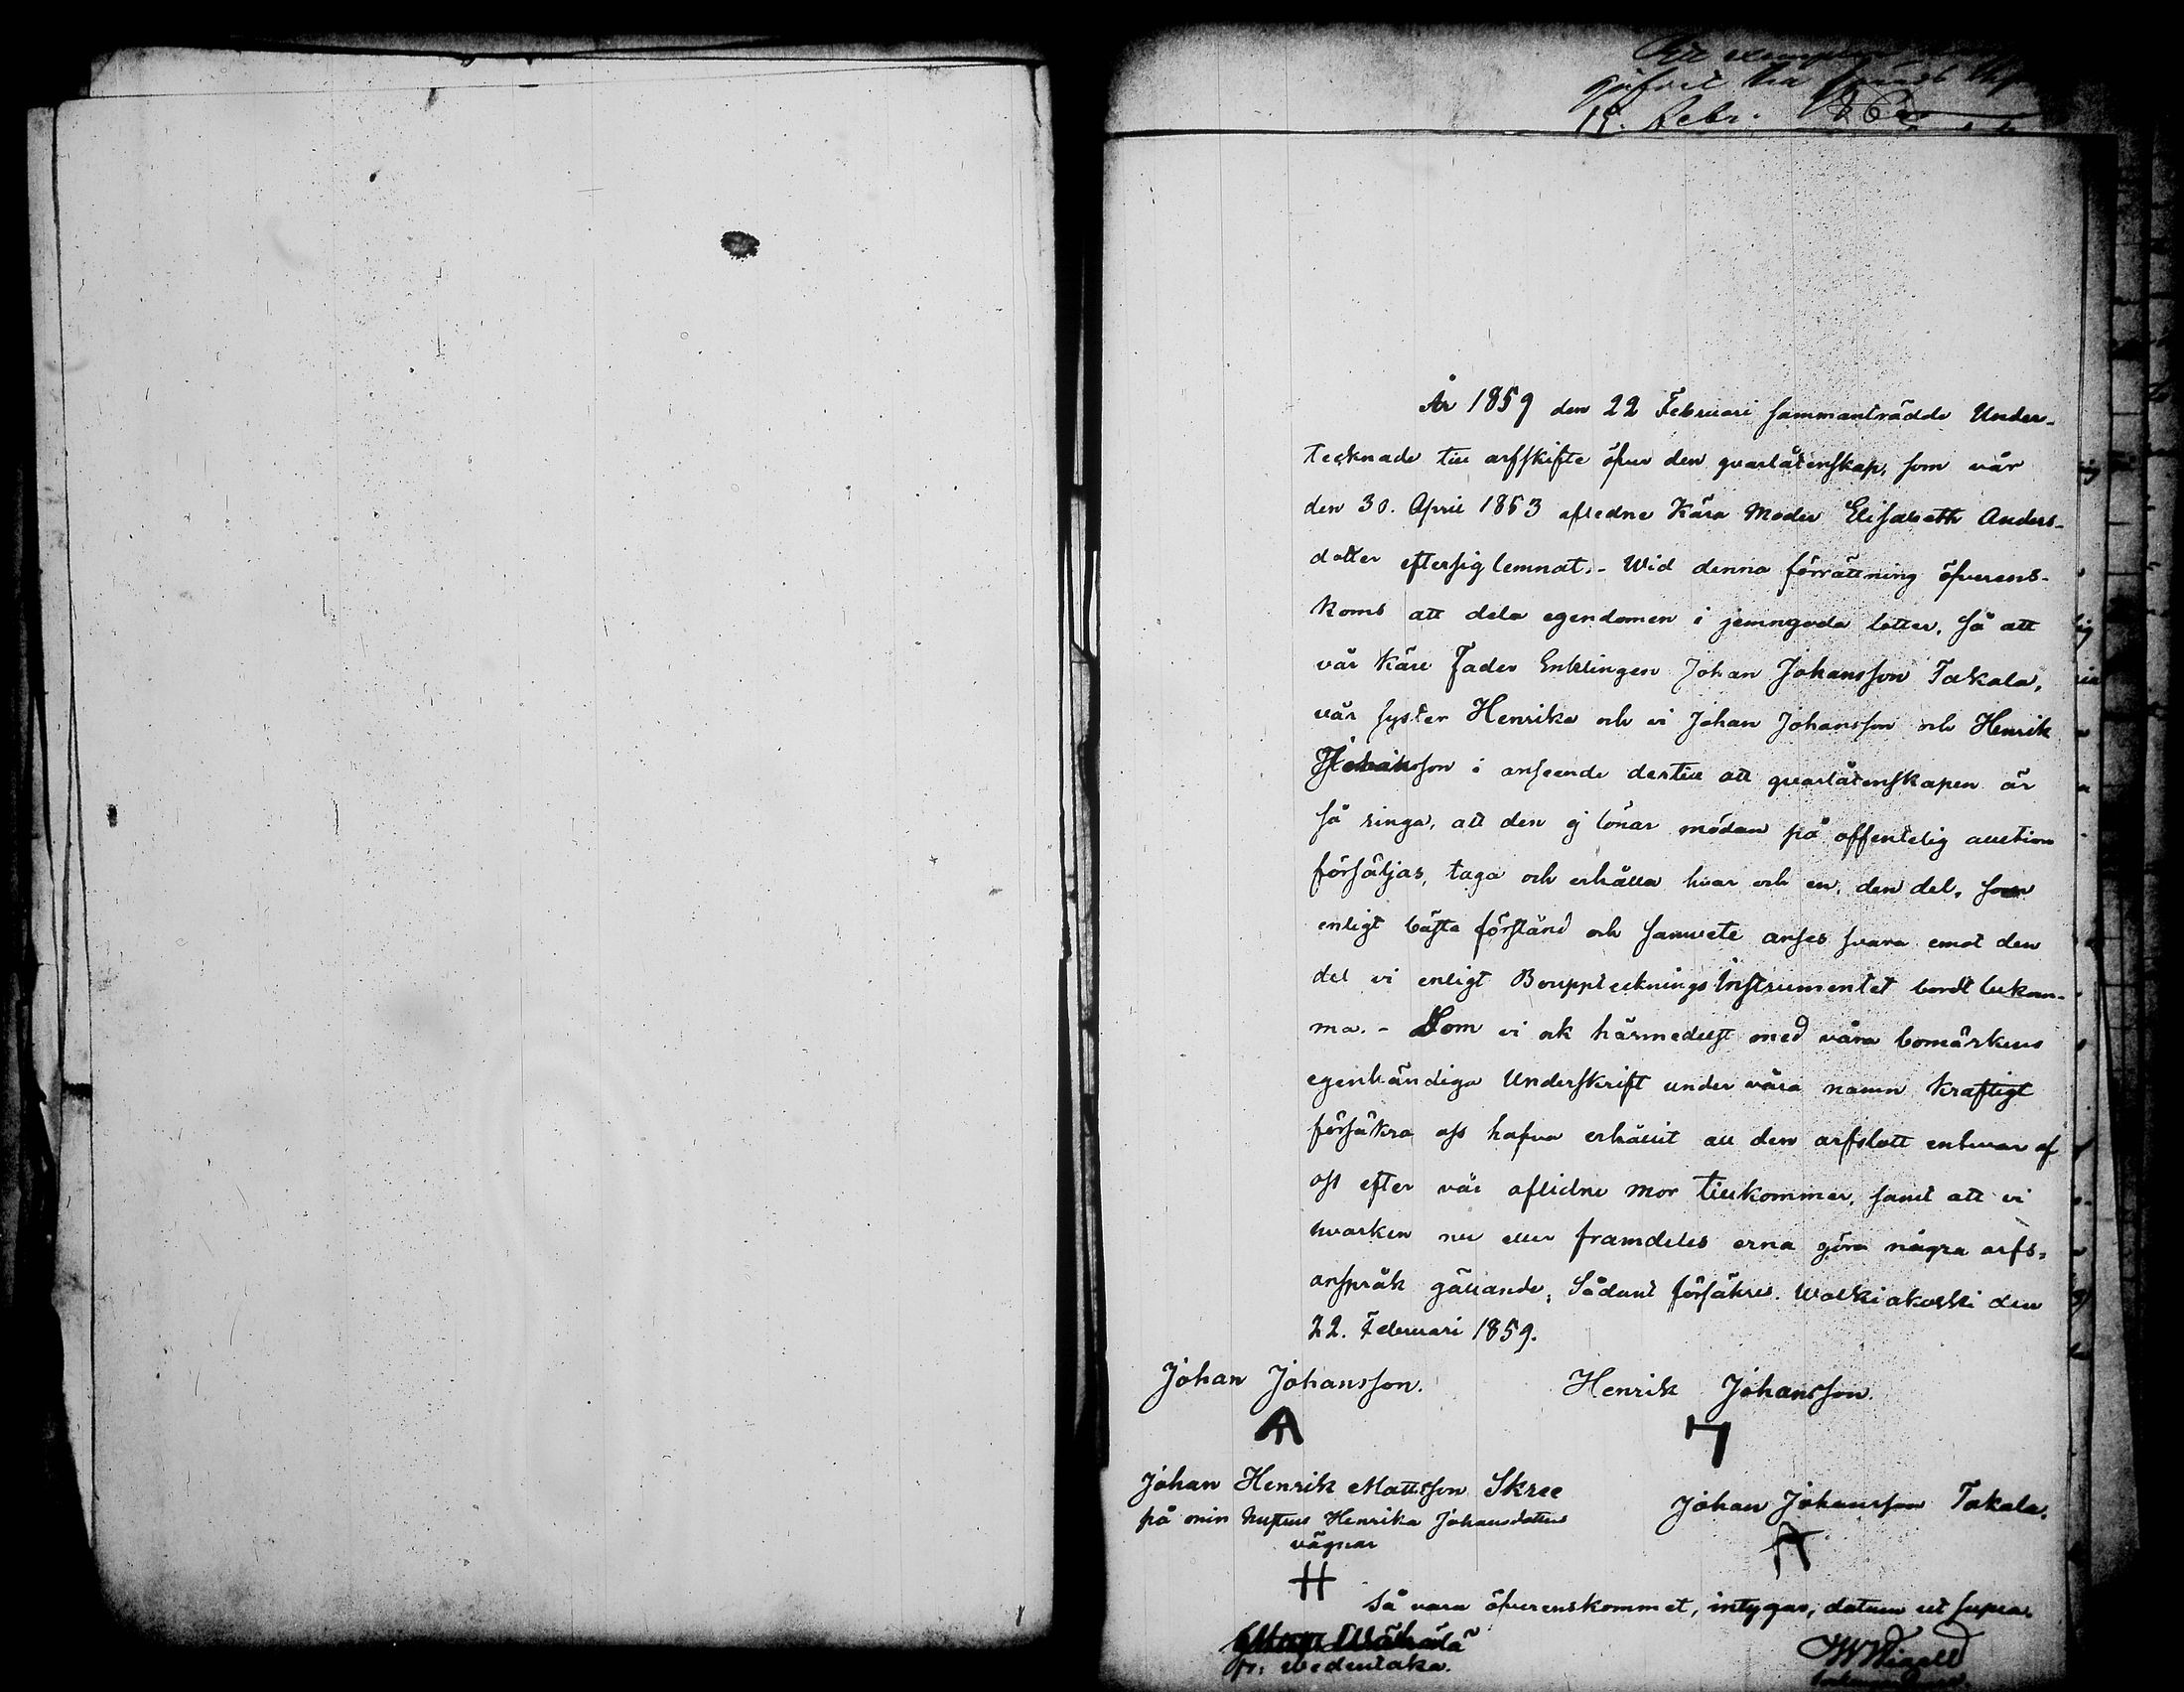 15. Febr.
År 1859 den 22 Februari sammanträdde Under-
tecknade till arfskifte öfver den qvarlåtenskap, som vår
den 30. April 1853 afledne Kära Moder Elisabeth Anders-
dotter eftersig lemnat. - Wid denna förrättning öfverens-
koms att dela egendomen i jemngoda lotter, så att
vår Käre Fader Enklingen Johan Johansson Takala,
vår syster Henrika och vi Johan Johansson och Henrik
Johansson i anseende dertill att qvarlåtenskapen är
så ringa, att den ej lönar mödan på offentelig auction
försäljas, taga och erhålla hvar och en, den del, som
enligt bästa förstånd och samvete anses svara emot den
del vi enligt Boupptecknings Instrumentet bordt bekom-
ma. - Som vi ock härmedelst med våra bomärkens
egenhändiga Underskrift under våra namn kraftigt
försäkra oss hafva erhållit all den arfslott enhvar af
oss efter vår aflidne mor tillkommer, samt att vi
hvarken nu eller framdeles erna göra några arfs-
anspråk gällande, Sådant försäkres. Walkiakoski den
22. Februari 1859.
Johan Johansson. Henrik Johansson.
Johan Henrik Mattsson Skree
på min hustrus Henrika Johansdotters
vägnar
Johan Johansson Takala.
H
Så vara öfverenskommet, intygar, datum ut supra.
fr. Wedentaka.